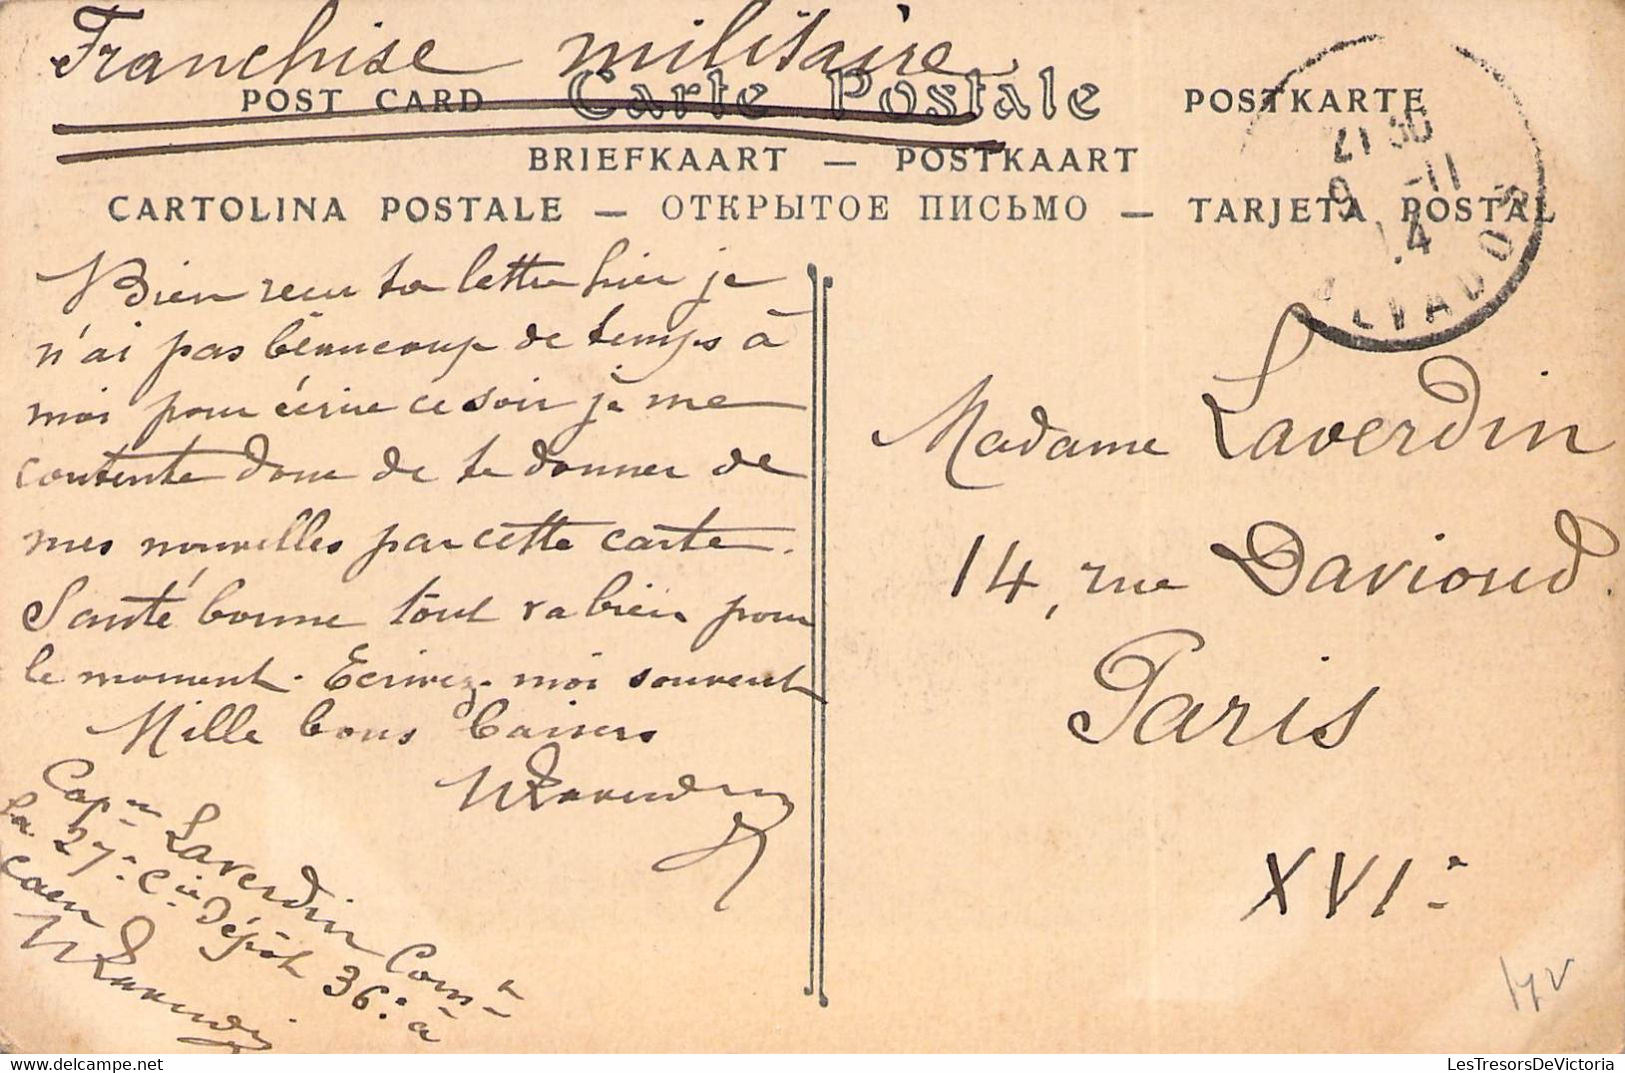 Franchise militaire
POST CARD Carte Postale POSTKARTE
BRIEFKAART — POSTKAART
CARTOLINA POSTALE — ОТКРЫТОЕ ПИСЬМО — TARJETA POSTAL
21 30
9 -11
14
CALVADOS
Bien reçu ta lettre hier je
n'ai pas beaucoup de temps à
moi pour écrire ce soir je me
contente donc de te donner de
mes nouvelles par cette carte.
Santé bonne tout va bien pour
le moment. Ecrivez-moi souvent
Mille bons baisers
Laverdin
Cap.ne Laverdin Com.t
la 27e Cie Dépôt 36e à
Caen
Laverdin
Madame Laverdin
14, rue Davioud.
Paris
XVIe
LesTresorsDeVictoria